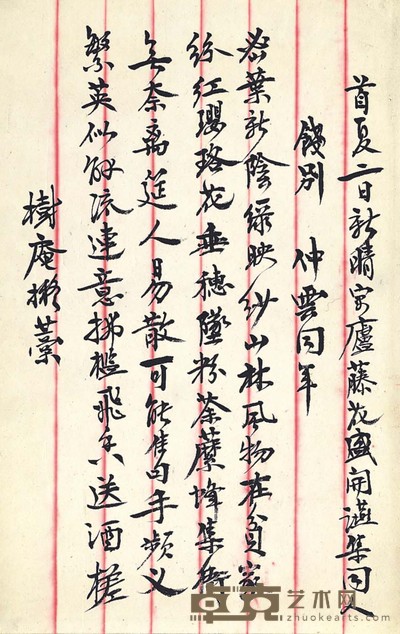 首夏二日新晴寓廬藤花盛開讌集同人
餞別 仲雲同年
葉新陰綠映紗山林風物在貧家
紛紅瓔珞花垂穗墜粉荼蘼蜂集衙
無奈離筵人易散可能佳句手頻叉
繁英似解流連意檻飛送酒槎
樹庵擬藁
卓克艺术网
zhuokearts.com